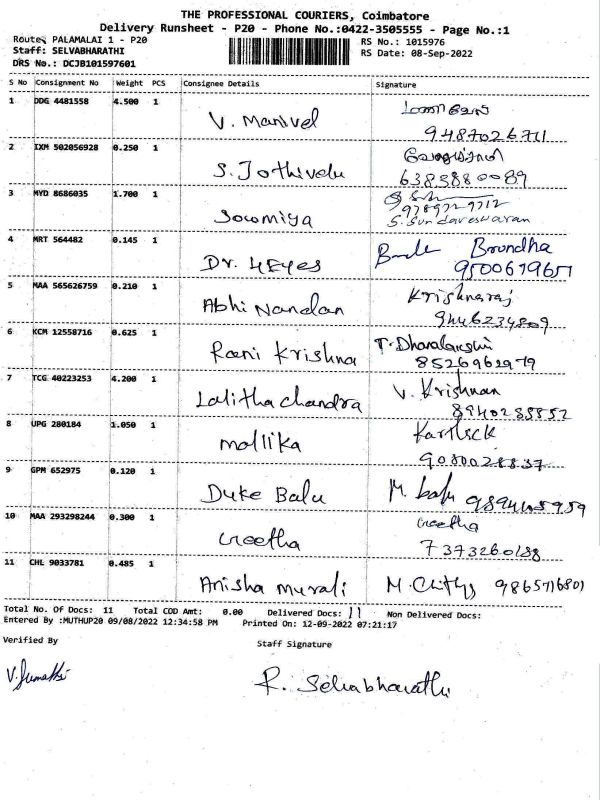 THE PROFESSIONAL COURIERS, Coimbatore
Delivery Runsheet - P20 - Phone No.:0422-3505555 - Page No.:1
Route: PALAMALAI 1 - P20
RS No.: 1015976
Staff: SELVABHARATHI
RS Date: 08-Sep-2022
DRS No.: DCJB101597601
S No Consignment No Weight PCS Consignee Details Signature
1 DDG 4481558 4.500 1 V. Manivel மணிவேல்
9487026711
2 IXM 502056928 0.250 1 S. Jothivelu
6385880089
3 MYD 8686035 1.700 1 Sowmiya
9789729712
S. Sundareswaran
4 MRT 564482 0.145 1 Dr. 4Eyes Brundha
9500679651
5 MAA 565626759 0.210 1 Abhi Nandan Krishnaraj
9446234809
6 KCM 12558716 0.625 1 Rani Krishna
8526962979
7 TCG 40223253 4.200 1 Lalitha chandra V. Krishnan
8940235552
8 UPG 280184 1.050 1 mallika Karthick
9080028837
9 GPM 652975 0.120 1 Duke Balu M. babu
10 MAA 293298244 0.300 1 Geetha Geetha
7373260188
11 CHL 9033781 0.485 1 Anisha murali 9865716801
Total No. Of Docs: 11 Total COD Amt: 0.00 Delivered Docs: 11 Non Delivered Docs:
Entered By :MUTHUP20 09/08/2022 12:34:58 PM Printed On: 12-09-2022 07:21:17
Verified By Staff Signature
V. Sumathi R. Selvabharathi